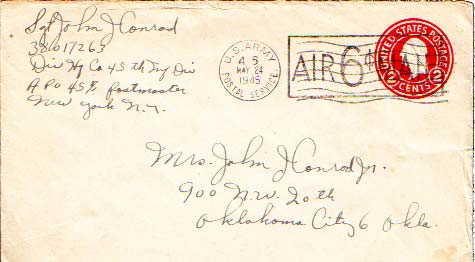 Sgt John J Conrad
38017263
Div Hq Co 45th Inf Div
A P O 45 % Postmaster
New York N.Y.
U.S. ARMY
4 5
MAY 24
1945
POSTAL SERVICE
AIR 6¢ MAIL
UNITED STATES POSTAGE
2 CENTS 2
Mrs. John J Conrad Jr.
900 N.W. 20th
Oklahoma City 6 Okla.